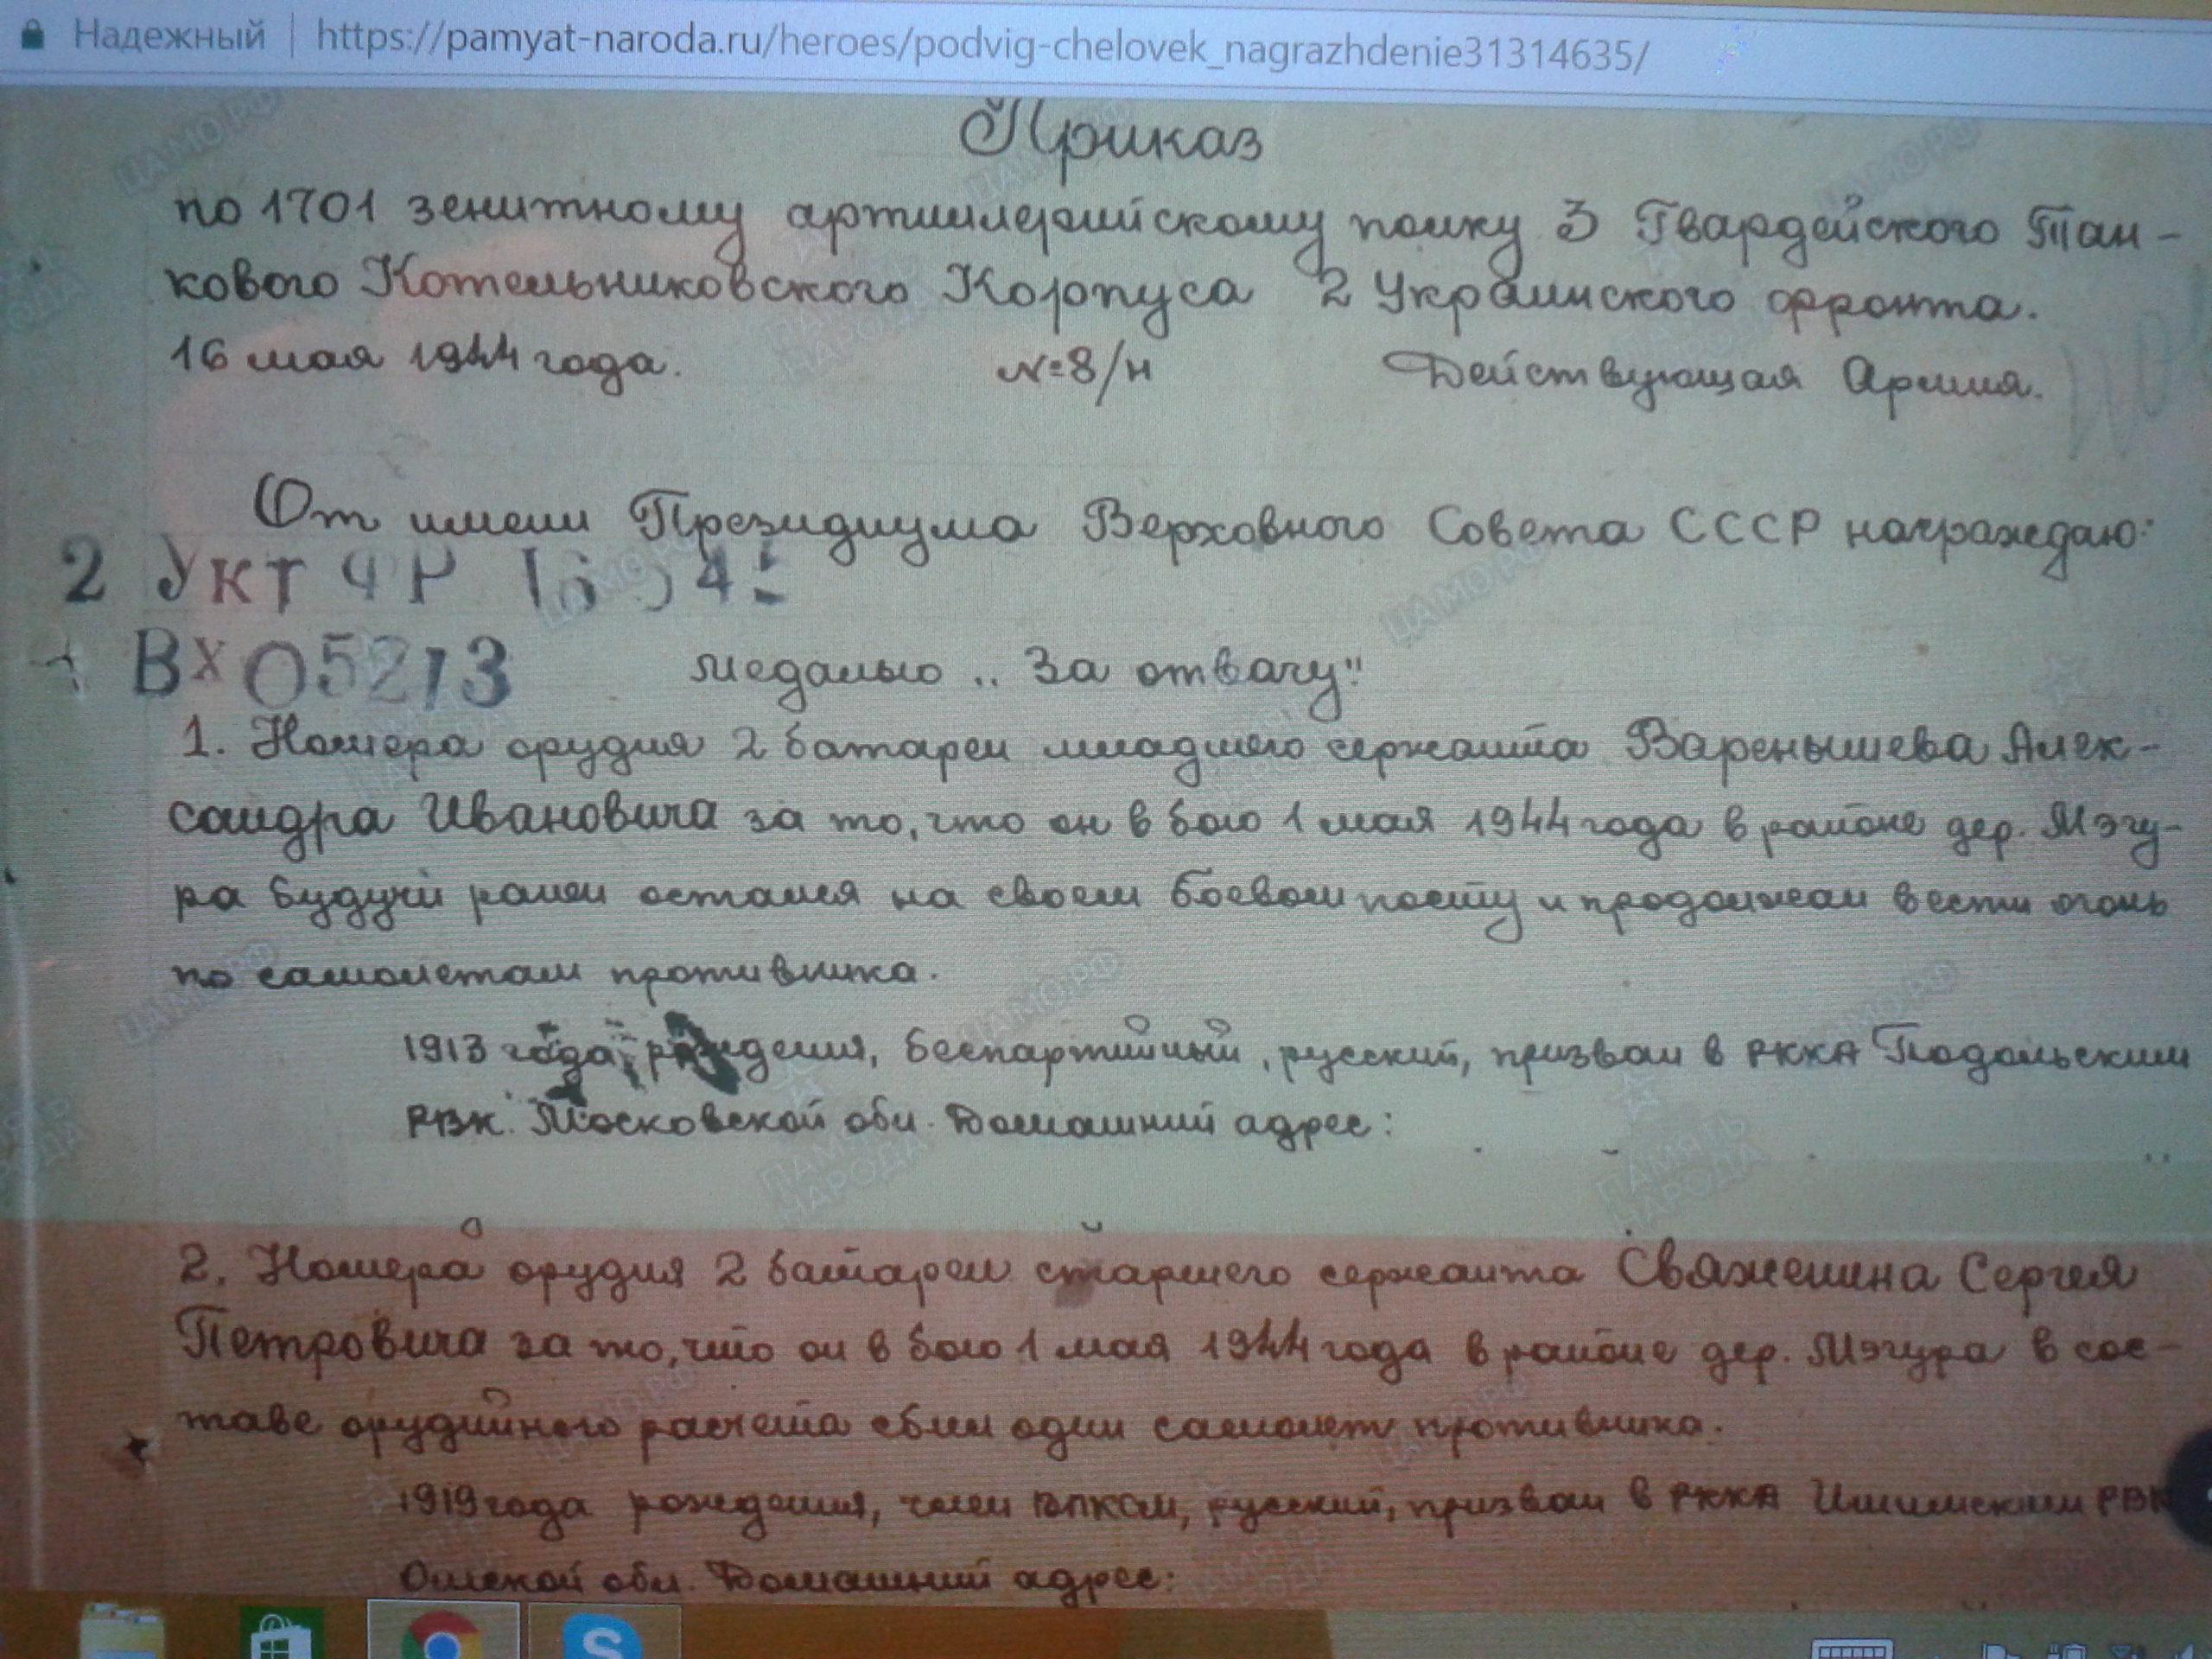 Надежный | https://pamyat-naroda.ru/heroes/podvig-chelovek_nagrazhdenie31314635/
Приказ
по 1701 зенитному артиллерийскому полку 3 Гвардейского Тан-
кового Котельниковского Корпуса 2 Украинского фронта.
16 мая 1944 года. №8/н Действующая Армия.
От имени Президиума Верховного Совета СССР награждаю:
2 УКТ ФР
ВХ 05213 медалью „За отвагу"
1. Номера орудия 2 батареи младшего сержанта Варенышева Алек-
сандра Ивановича за то, что он в бою 1 мая 1944 года в районе дер. Мэгу-
ра будучи ранен остался на своем боевом посту и продолжал вести огонь
по самолетам противника.
1913 года рождения, беспартийный, русский, призван в РККА Подольским
РВК. Московской обл. Домашний адрес:
2. Номера орудия 2 батареи старшего сержанта Свяженина Сергея
Петровича за то, что он в бою 1 мая 1944 года в районе дер. Мэгура в сос-
таве орудийного расчета сбил один самолет противника.
1919 года рождения, член ВЛКСМ, русский, призван в РККА Ишимским РВК
Омской обл. Домашний адрес:
ЦАМО РФ
ПАМЯТЬ
НАРОДА